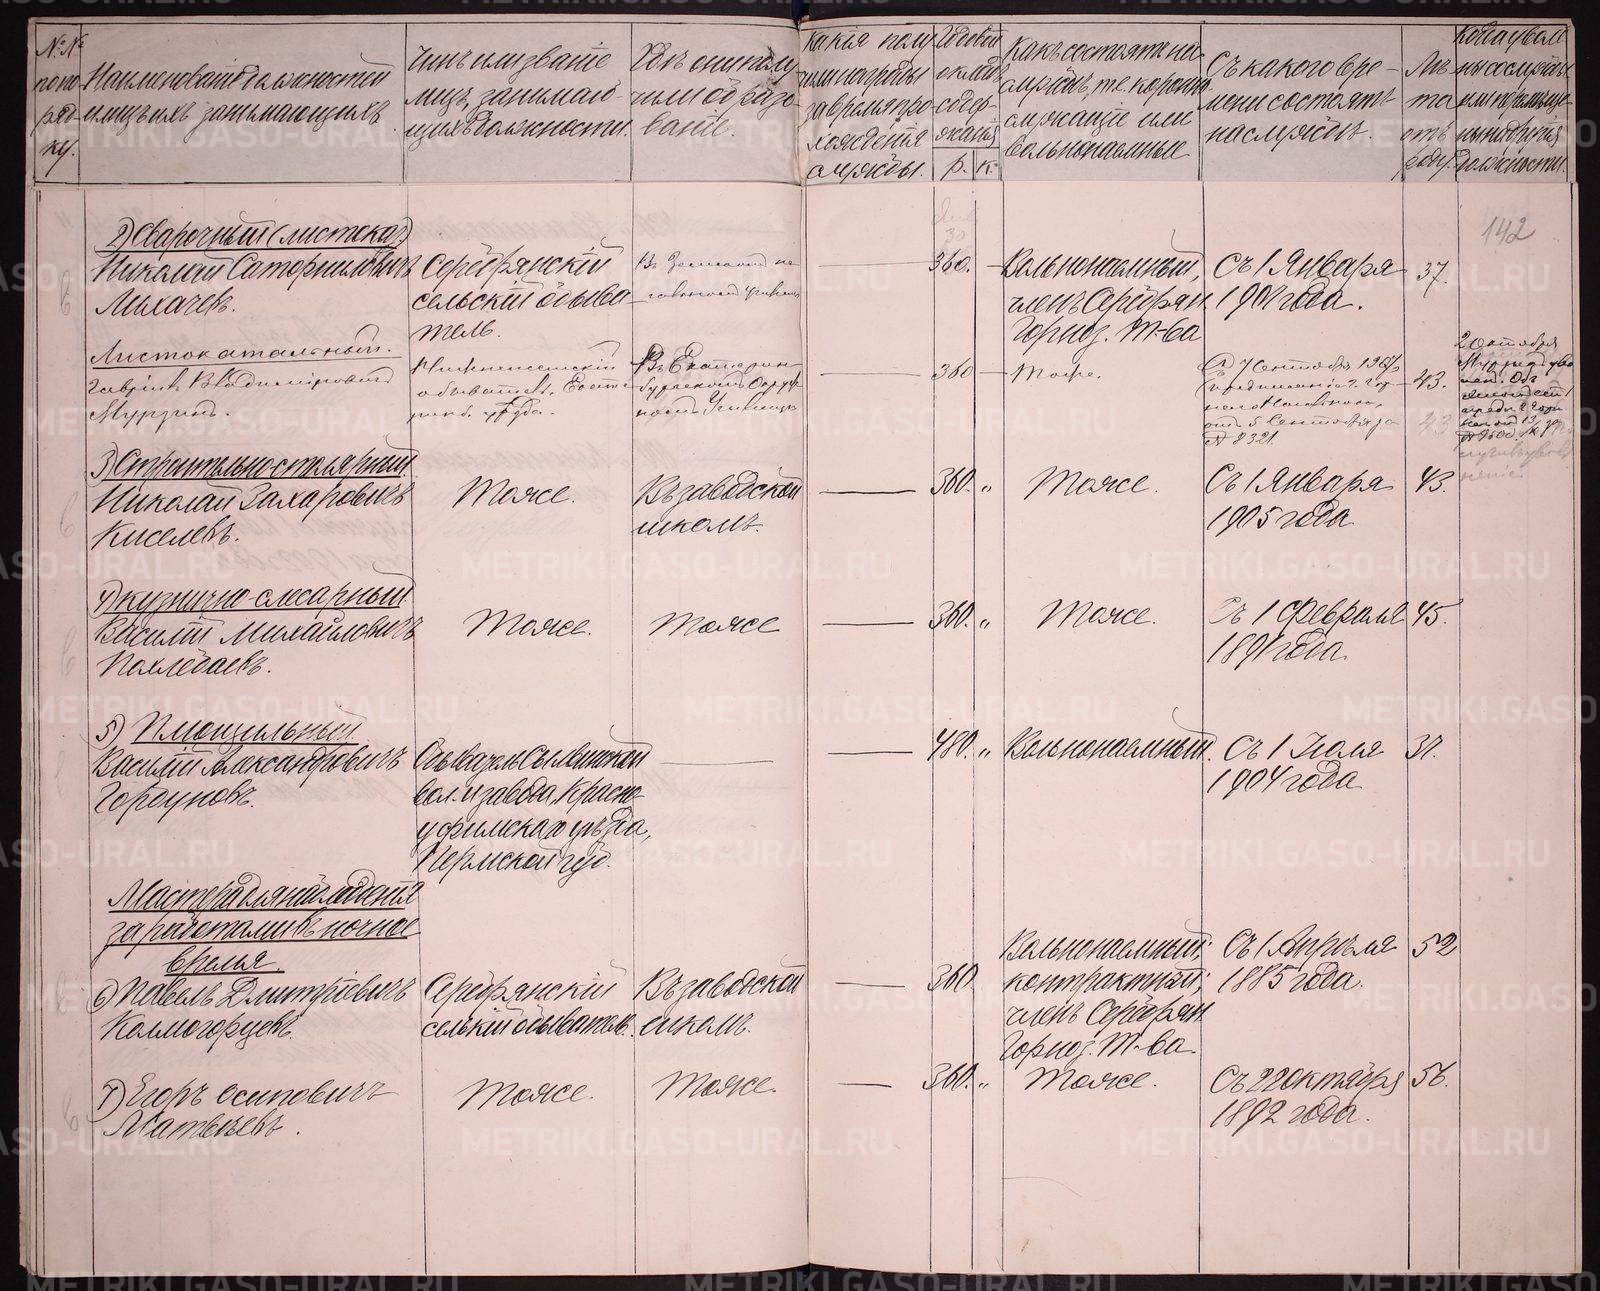 №№ по поряд- ку.
Наименованiе должностей
и лицъ ихъ занимающихъ
Чинъ или званiе
лицъ, занимаю-
щихъ должности.
Гдѣ они полу-
чили образо-
ванiе.
Какiя полу
чили награды
за время про-
хожденiя
службы.
Годовой
окладъ
содер-
жанiя
р. к.
Какъ состоятъ на
службѣ, т.е. коронно
служащiе или
вольнонаемные
Съ какого вре-
мени состоятъ
на службѣ.
Лѣ-
та
отъ
роду.
Когда уволе
ны со службы
или перемѣще
ны на другiя
должности.
142
2) Сварочный (листокат.)
Николай Саторниловичъ
Лихачевъ.
Серебрянскiй
сельскiй обыва
тель.
360.
Вольнонаемный,
членъ Серебрян.
Горноз. Т-ва
Съ 1 Января
1901 года.
37.
Листокатальный.
Гаврiилъ Владимiровичъ
Мурзинъ.
обыватель, Екате
ринб. уѣзда.
Въ Екатерин-
бургскомъ Окруж
номъ Училищѣ
360
Тоже.
отъ 5 Сентября за
№ 8321
43.
43
3) Строительно-столярный
Николай Захаровичъ
Киселевъ.
Тоже.
Въ заводской
школѣ.
360. „
Тоже.
Съ 1 Января
1905 года
43.
4) Кузнично-слесарный
Василiй Михайловичъ
Похлебаевъ.
Тоже.
Тоже
360. „
Тоже.
Съ 1 Февраля
1891 года
45.
5) Плющильный
Василiй Александровичъ
Горбуновъ.
Обыватель Сылвинской
вол. и завода, Красно-
уфимскаго уѣзда,
Пермской губ.
480. „
Вольнонаемный.
Съ 1 Iюля
1904 года
37.
Мастера для наблюденiя
за работами въ ночное
время.
6) Павелъ Дмитрiевичъ
Колмогорцевъ.
Серебрянскiй
селькiй обыватель.
Въ заводской
школѣ.
360
Вольнонаемный;
контрактный;
членъ Серебрян.
Горноз. Т-ва.
Съ 1 Апрѣля
1885 года.
52
7) Егоръ Осиповичъ
Матвѣевъ.
Тоже.
Тоже.
360. „
Тоже.
Съ 22 Октября
1892 года.
56.
METRIKI.GASO-URAL.RU